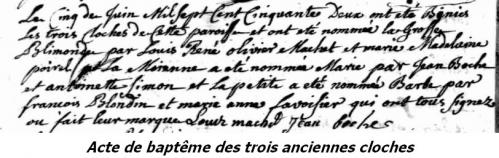 Le Cinq de Juin Mil Sept Cent Cinquante Deux ont été Bénies
les trois cloches de cette paroisse et ont été nommée la Grosse
Blimonde par Louis René olivier Machet et marie Madelaine
poirel et La Moienne a été nommée Marie par Jean Boche
et antoinette Simon et la petite a été nommée Barbe par
francois Blondin et marie anne Lavoisier qui ont tous signez
ou fait leur marque Louis machet Jean boche
Acte de baptême des trois anciennes cloches